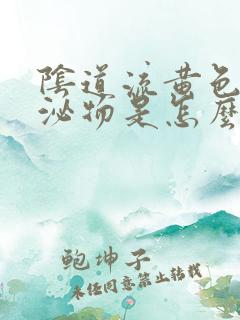 陰道流黄色
泌物是怎麼
鲍坤子
未经同意禁止转载